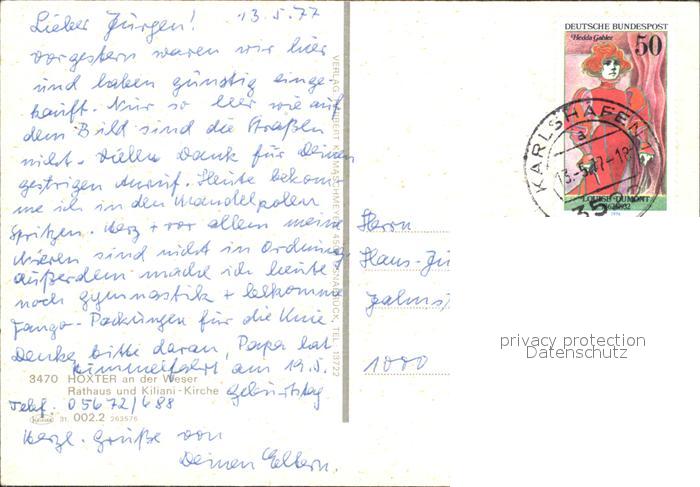 13.5.77
Lieber Jürgen!
vorgestern waren wir hier
und haben günstig einge-
kauft. Nur so leer wie auf
dem Bild sind die Straßen
nicht. Vielen Dank für Deinen
gestrigen Anruf. Heute bekom-
me ich in den Mandelpolen
Spritzen. Herz + vor allem meine
Nieren sind nicht in Ordnung,
außerdem mache ich heute
noch Gymnastik + bekomme
Fango-Packungen für die Knie
Denke bitte daran, Papa hat
Himmelfahrt am 19.5.
Geburtstag
3470 HÖXTER an der Weser
Rathaus und Kiliani-Kirche
Telef. 05672/688
31. 002.2 263576
Herzl. Grüße von
Deinen Eltern.
DEUTSCHE BUNDESPOST
Hedda Gabler
50
LOUISE DUMONT
KARLSHAFEN 1
a
13.-5.77-18
35
Herrn
Hans-Jü
1000
privacy protection
Datenschutz